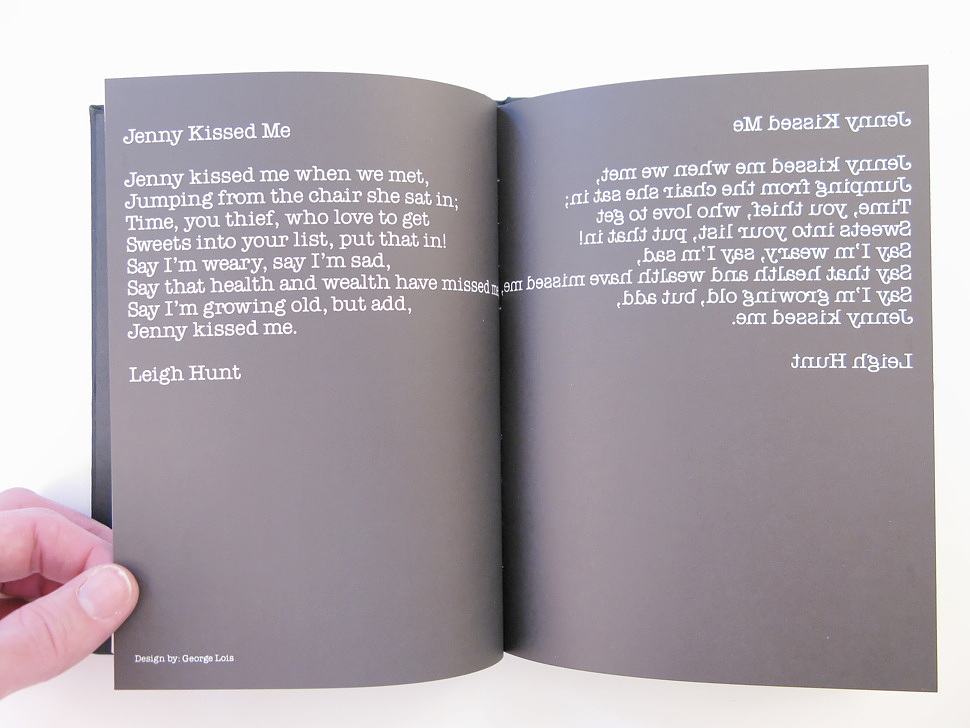 Jenny Kissed Me
Jenny kissed me when we met,
Jumping from the chair she sat in;
Time, you thief, who love to get
Sweets into your list, put that in!
Say I'm weary, say I'm sad,
Say that health and wealth have missed me,
Say I'm growing old, but add,
Jenny kissed me.
Leigh Hunt
Design by: George Lois
Jenny Kissed Me
Jenny kissed me when we met,
Jumping from the chair she sat in;
Time, you thief, who love to get
Sweets into your list, put that in!
Say I'm weary, say I'm sad,
Say that health and wealth have missed me,
Say I'm growing old, but add,
Jenny kissed me.
Leigh Hunt